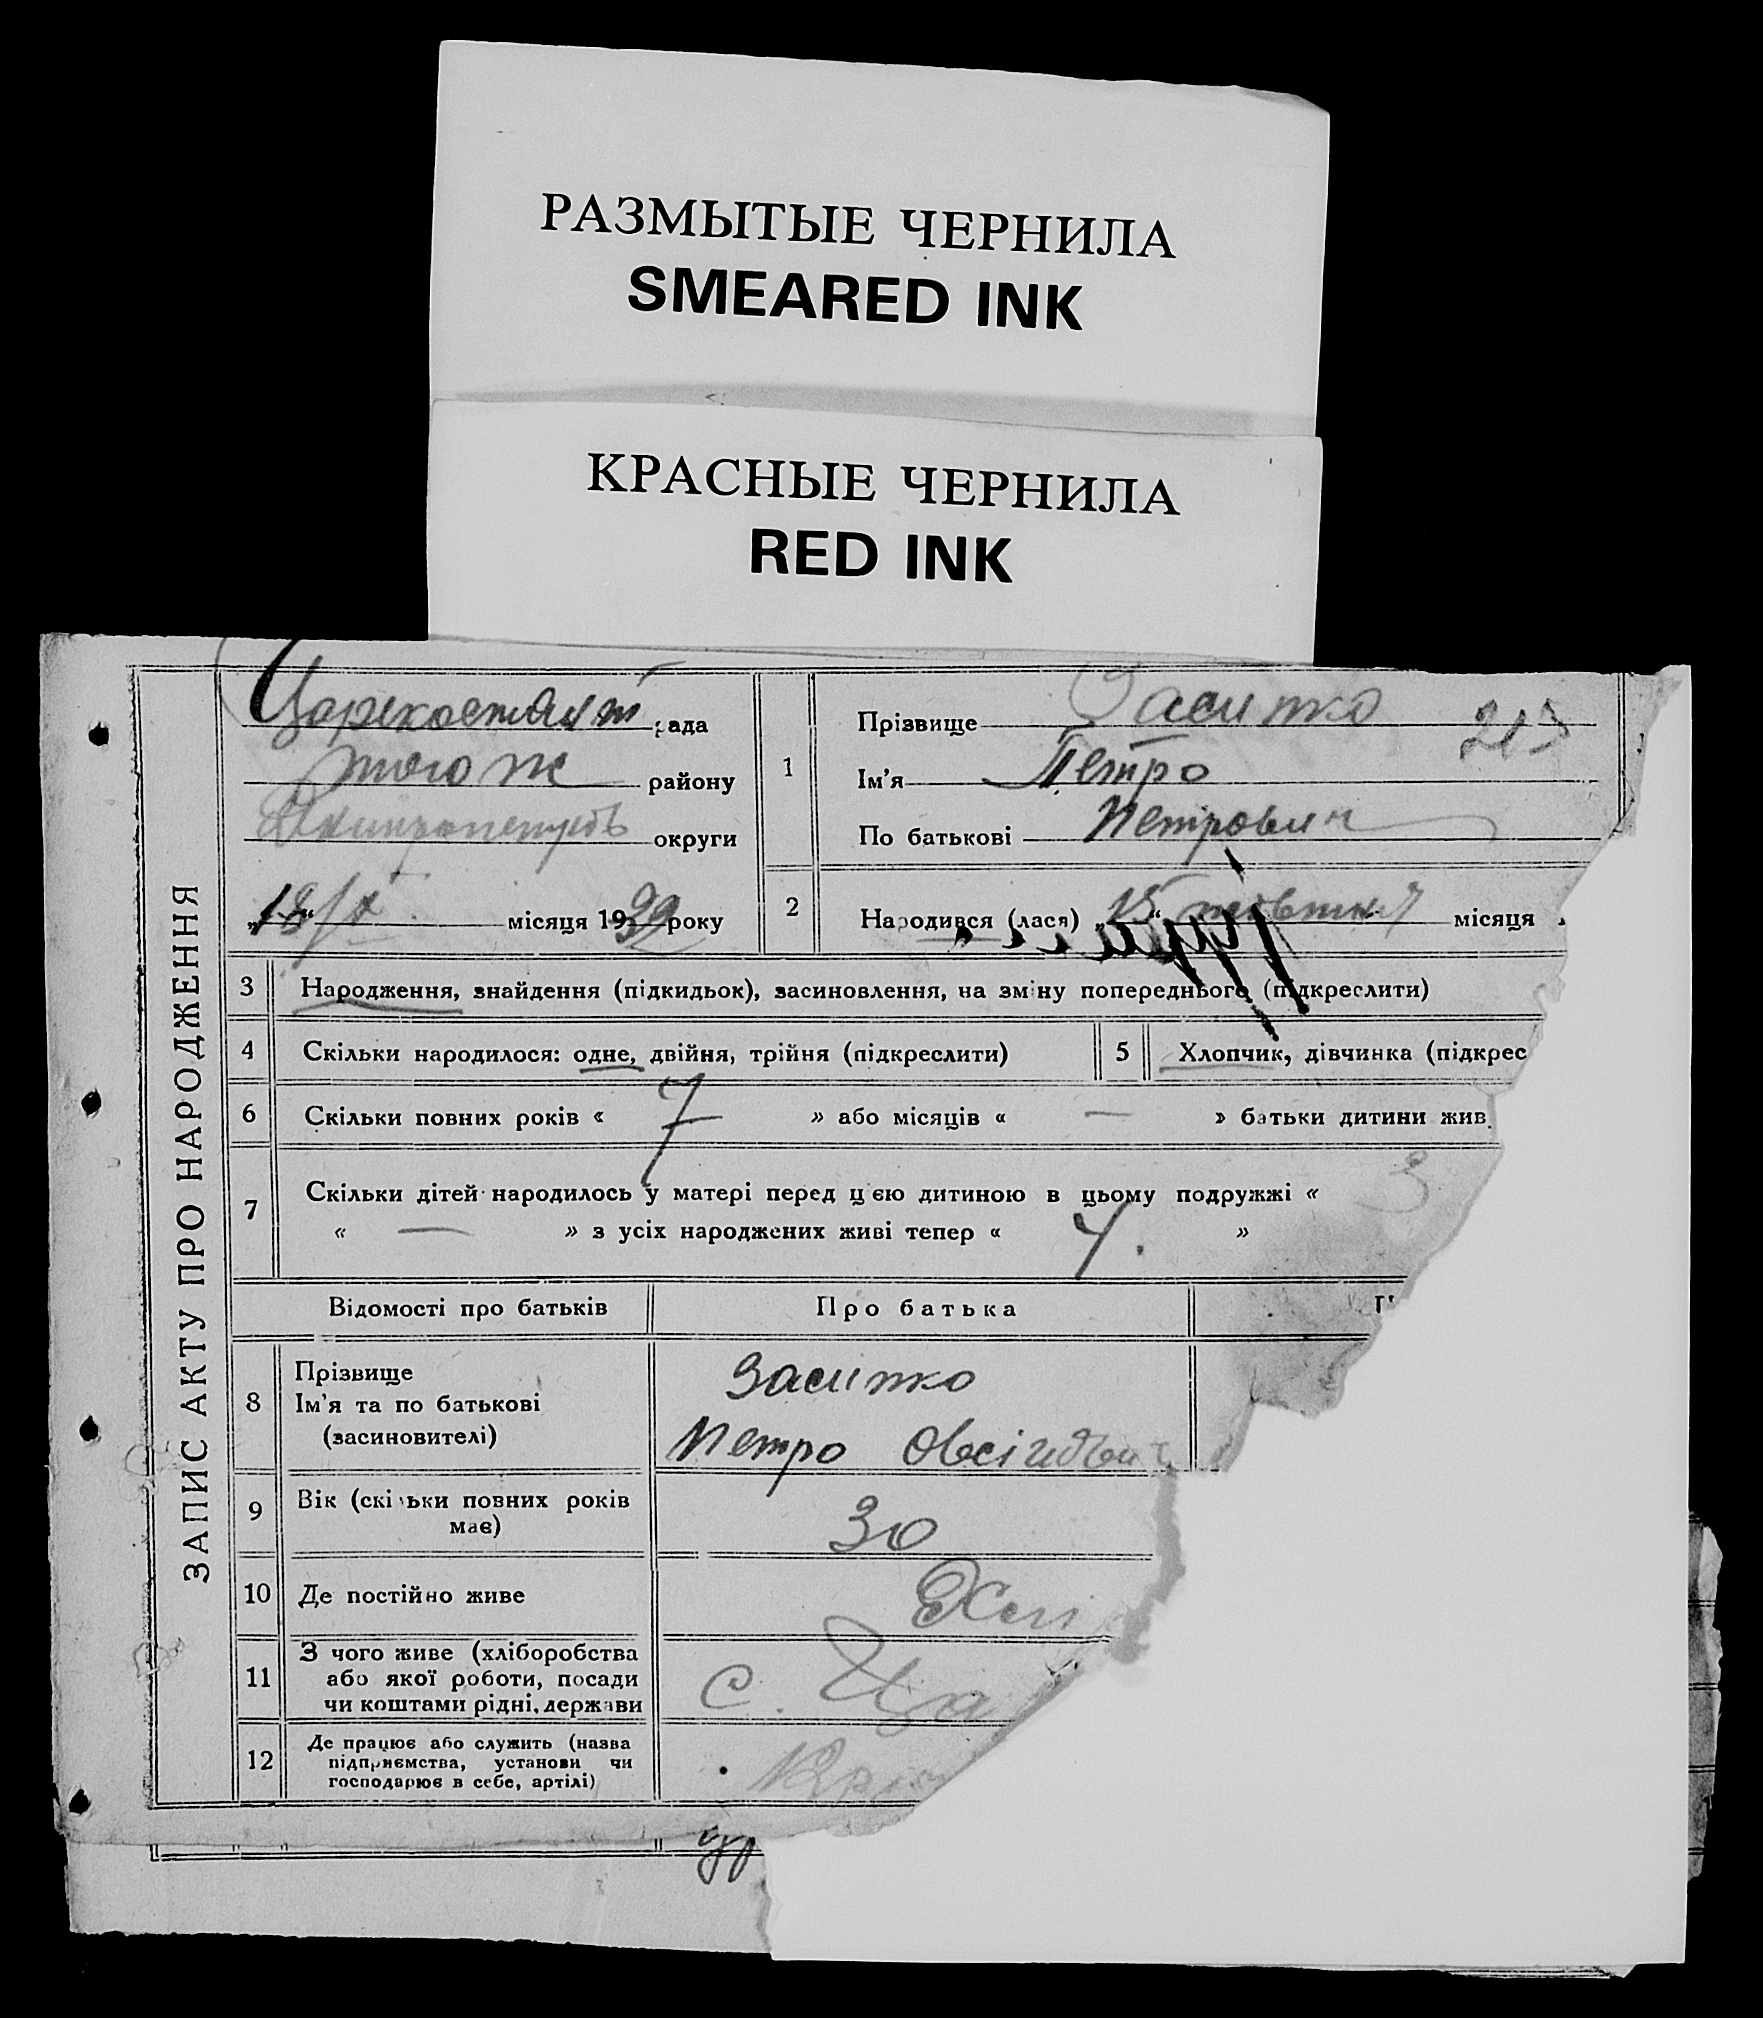 РАЗМЫТЫЕ ЧЕРНИЛА
SMEARED INK
КРАСНЫЕ ЧЕРНИЛА
RED INK
ЗАПИС АКТУ ПРО НАРОДЖЕННЯ
рада
того ж району
округи
місяця 19 року
1
Прізвище Засипко
Ім'я Петро
По батькові Петрович
2
Народився (лася) „15“ жовтня місяця
3 Народження, знайдення (підкидьок), засиновлення, на зміну попереднього (підкреслити)
4 Скільки народилося: одне, двійня, трійня (підкреслити) 5 Хлопчик, дівчинка (підкрес
6 Скільки повних років « 7 » або місяців « — » батьки дитини жив
7 Скільки дітей народилось у матері перед цією дитиною в цьому подружжі « 3
« — » з усіх народжених живі тепер « 4. »
Відомості про батьків Про батька
8 Прізвище
Ім'я та по батькові
(засиновителі)
Засипко
Петро
9 Вік (скільки повних років
має) 30
10 Де постійно живе
11 З чого живе (хліборобства
або якої роботи, посади
чи коштами рідні, держави
с. Ца
12 Де працює або служить (назва
підприємства, установи чи
господарює в себе, артілі)